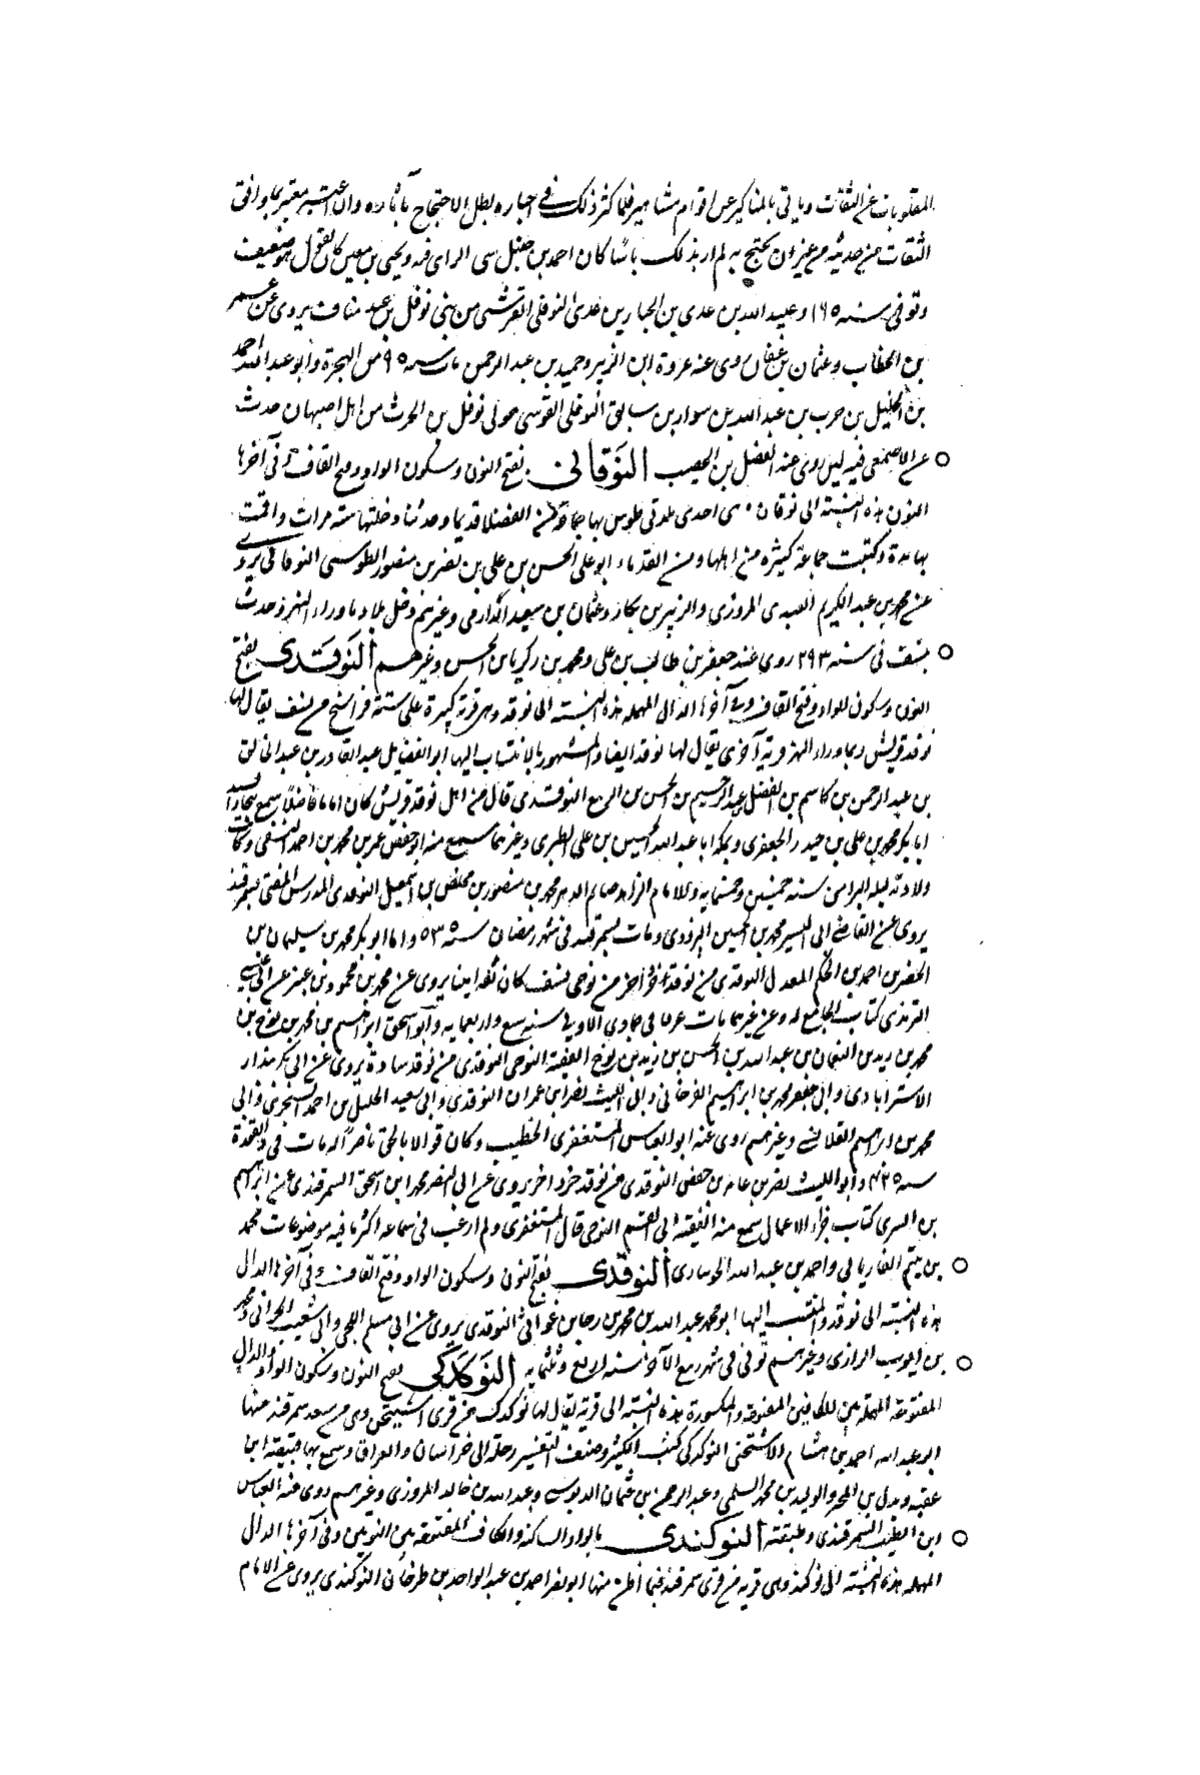 المقلوبات عن الثقات ويأتي بالمناكير عن اقوام مشاهير فلما كثر ذلك في اخباره بطل الاحتجاج بآثاره وان اعتبر معتبر بما وافق
الثقات من حديثه من غير ان يحتج به لم ار بذلك باسا كان احمد بن حنبل سيئ الراي فيه ويحيى بن معين كان يقول هو ضعيف
وتوفى سنة ١٦٥ وعبيد الله بن عدى بن الخيار بن عدى النوفلى القرشى من بنى نوفل بن عبد مناف يروى عن عمر
بن الخطاب وعثمان بن عفان روى عنه عروة ابن الزبير وحميد بن عبد الرحمن مات سنة ٩٥ من الهجرة وابو عبد الله احمد
بن الخليل بن حرب بن عبد الله بن سوار بن سابق النوفلى القومسى مولى نوفل بن الحرث من اهل اصبهان حدث
عن الاصمعى فيه لين روى عنه الفضل بن الخصيب النوقانى بفتح النون وسكون الواو وفتح القاف وفى آخرها
النون هذه النسبة الى نوقان وهى احدى بلدتى طوس بها جماعة من الفضلا قديما وحديثا دخلتها ستة مرات واقمت
بها مدة وكتبت جماعة كثيرة من اهلها ومن القدماء ابو على الحسن بن على بن نصر بن منصور الطوسى النوقانى يروى
عن محمد بن عبد الكريم العبدى المروزى والزبير بن بكار وعثمان بن سعيد الدارمى وغيرهم دخل بلاد ما وراء النهر وحدث
بنسف فى سنة ٢٩٣ روى عنه جعفر بن طالب بن على ومحمد بن زكريا بن الحسن وغيرهم النوقدى بفتح
النون وسكون الواو وفتح القاف وفي آخرها الدال المهملة هذه النسبة الى نوقد وهى قرية كبيرة على ستة فراسخ من نسف يقال لها
نوقد قريش وبما وراء النهر قرية آخرى يقال لها نوقد ايضا والمشهور بالانتساب اليها ابو الفضايل عبد القادر بن عبد الخالق
بن عبد الرحمن بن قاسم بن الفضل عبد الرحيم بن الحسن بن الربيع النوقدى قال من اهل نوقد قريش كان اماما فاضلا سمع ببخارا السيد
ابا بكر محمد بن على بن حيدر الجعفرى وبمكة ابا عبد الله الحسين بن على الطبرى وغيرهما سمع منه ابو حفص عمر بن محمد بن احمد النسفى وكانت
ولادته ليلة البراءة سنة خمسين وخمسمايه والامام الزاهد صايم الدهر محمد بن منصور بن مخلص بن اسمعيل النوقدى المدرس المفتى بسمرقند
يروى عن القاضى ابى اليسر محمد بن الحسين البزدوى ومات بسمرقند فى شهر رمضان سنة ٥٣٥ واما ابو بكر محمد بن سليمان بن
الخضر بن احمد بن الحكم المعدل النوقدى من نوقد خرد آخر من نوحى بنسف كان ثقة امينا يروى عن محمد بن محمود بن عنبر عن ابى عيسى
الترمذى كتاب الجامع له وعن غيرهما مات عرما فى جمادى الاولى سنة سبع واربعمايه وابو اسحق ابراهيم بن محمد بن نوح بن
محمد بن زيد بن النعمان بن عبد الله بن الحسن بن زيد بن نوح الفقيه النوحى النوقدى من نوقد ساوة يروى عن ابى بكر بندار
الاستراباذى وابى جعفر محمد بن ابراهيم الفرخانى وابى الليث نصر ابن عمران النوقدى وابى سعيد الخليل بن احمد السنجرى وابى
محمد بن ابراهيم القلانسى وغيرهم روى عنه ابو العباس المستغفرى الخطيب وكان قوالا بالحق ناصرا له مات فى ذى القعدة
سنة ٤٢٥ وابو الليث نصر بن عامر بن حفص النوقدى من نوقد خرد اخر يروى عن ابى النضر محمد ابن اسحق السمرقندى عن ابراهيم
بن السرى كتاب جزاء الاعمال سمع منه الفقيه ابى القسم النوحى قال المستغفرى ولم ارغب فى سماعه اكثر ما فيه موضوعات محمد
بن تميم الفاريابى واحمد بن عبد الله الجوبارى النوقدى بفتح النون وسكون الواو وفتح القاف وفى آخرها الدال
هذه النسبة الى نوقد والمنتسب اليها ابو محمد عبد الله بن محمد بن رجا بن غواثى النوقدى يروى عن ابى مسلم اللجى وابى شعيب الحرانى ومحمد
بن ايوب الرازى وغيرهم توفى فى شهر ربيع الآخر سنة اربع وثلثمايه النوكدكى بفتح النون وسكون الواو والدال
المفتوحة المهملة بين الكافين المفتوحة والمكسورة هذه النسبة الى قرية يقال لها نوكدك من قرى اشتيخن وهى من سغد سمرقند منها
ابو عبد الله احمد بن هشام الاشتخنى النوكدكى كتب الكثير وصنف التفسير رحلة الى خراسان والعراق وسمع بها قبيصة ابن
عقبه وبدل بن المحبر والوليد بن محمد السلمى وعبد الرحمن بن عثمان الدبوسى وعبد الله بن خالد المروزى وغيرهم روى عنه العباس
وابن الطيب السمرقندى وطبقته النوكندى بالواو الساكنة والكاف المفتوحة بين النونين وفى آخرها الدال
المهملة هذه النسبة الى نوكند وهى قرية من قرى سمرقند فيما اظن منها ابو بفر احمد بن عبد الواحد بن طرخان النوكندى يروى عن الامام